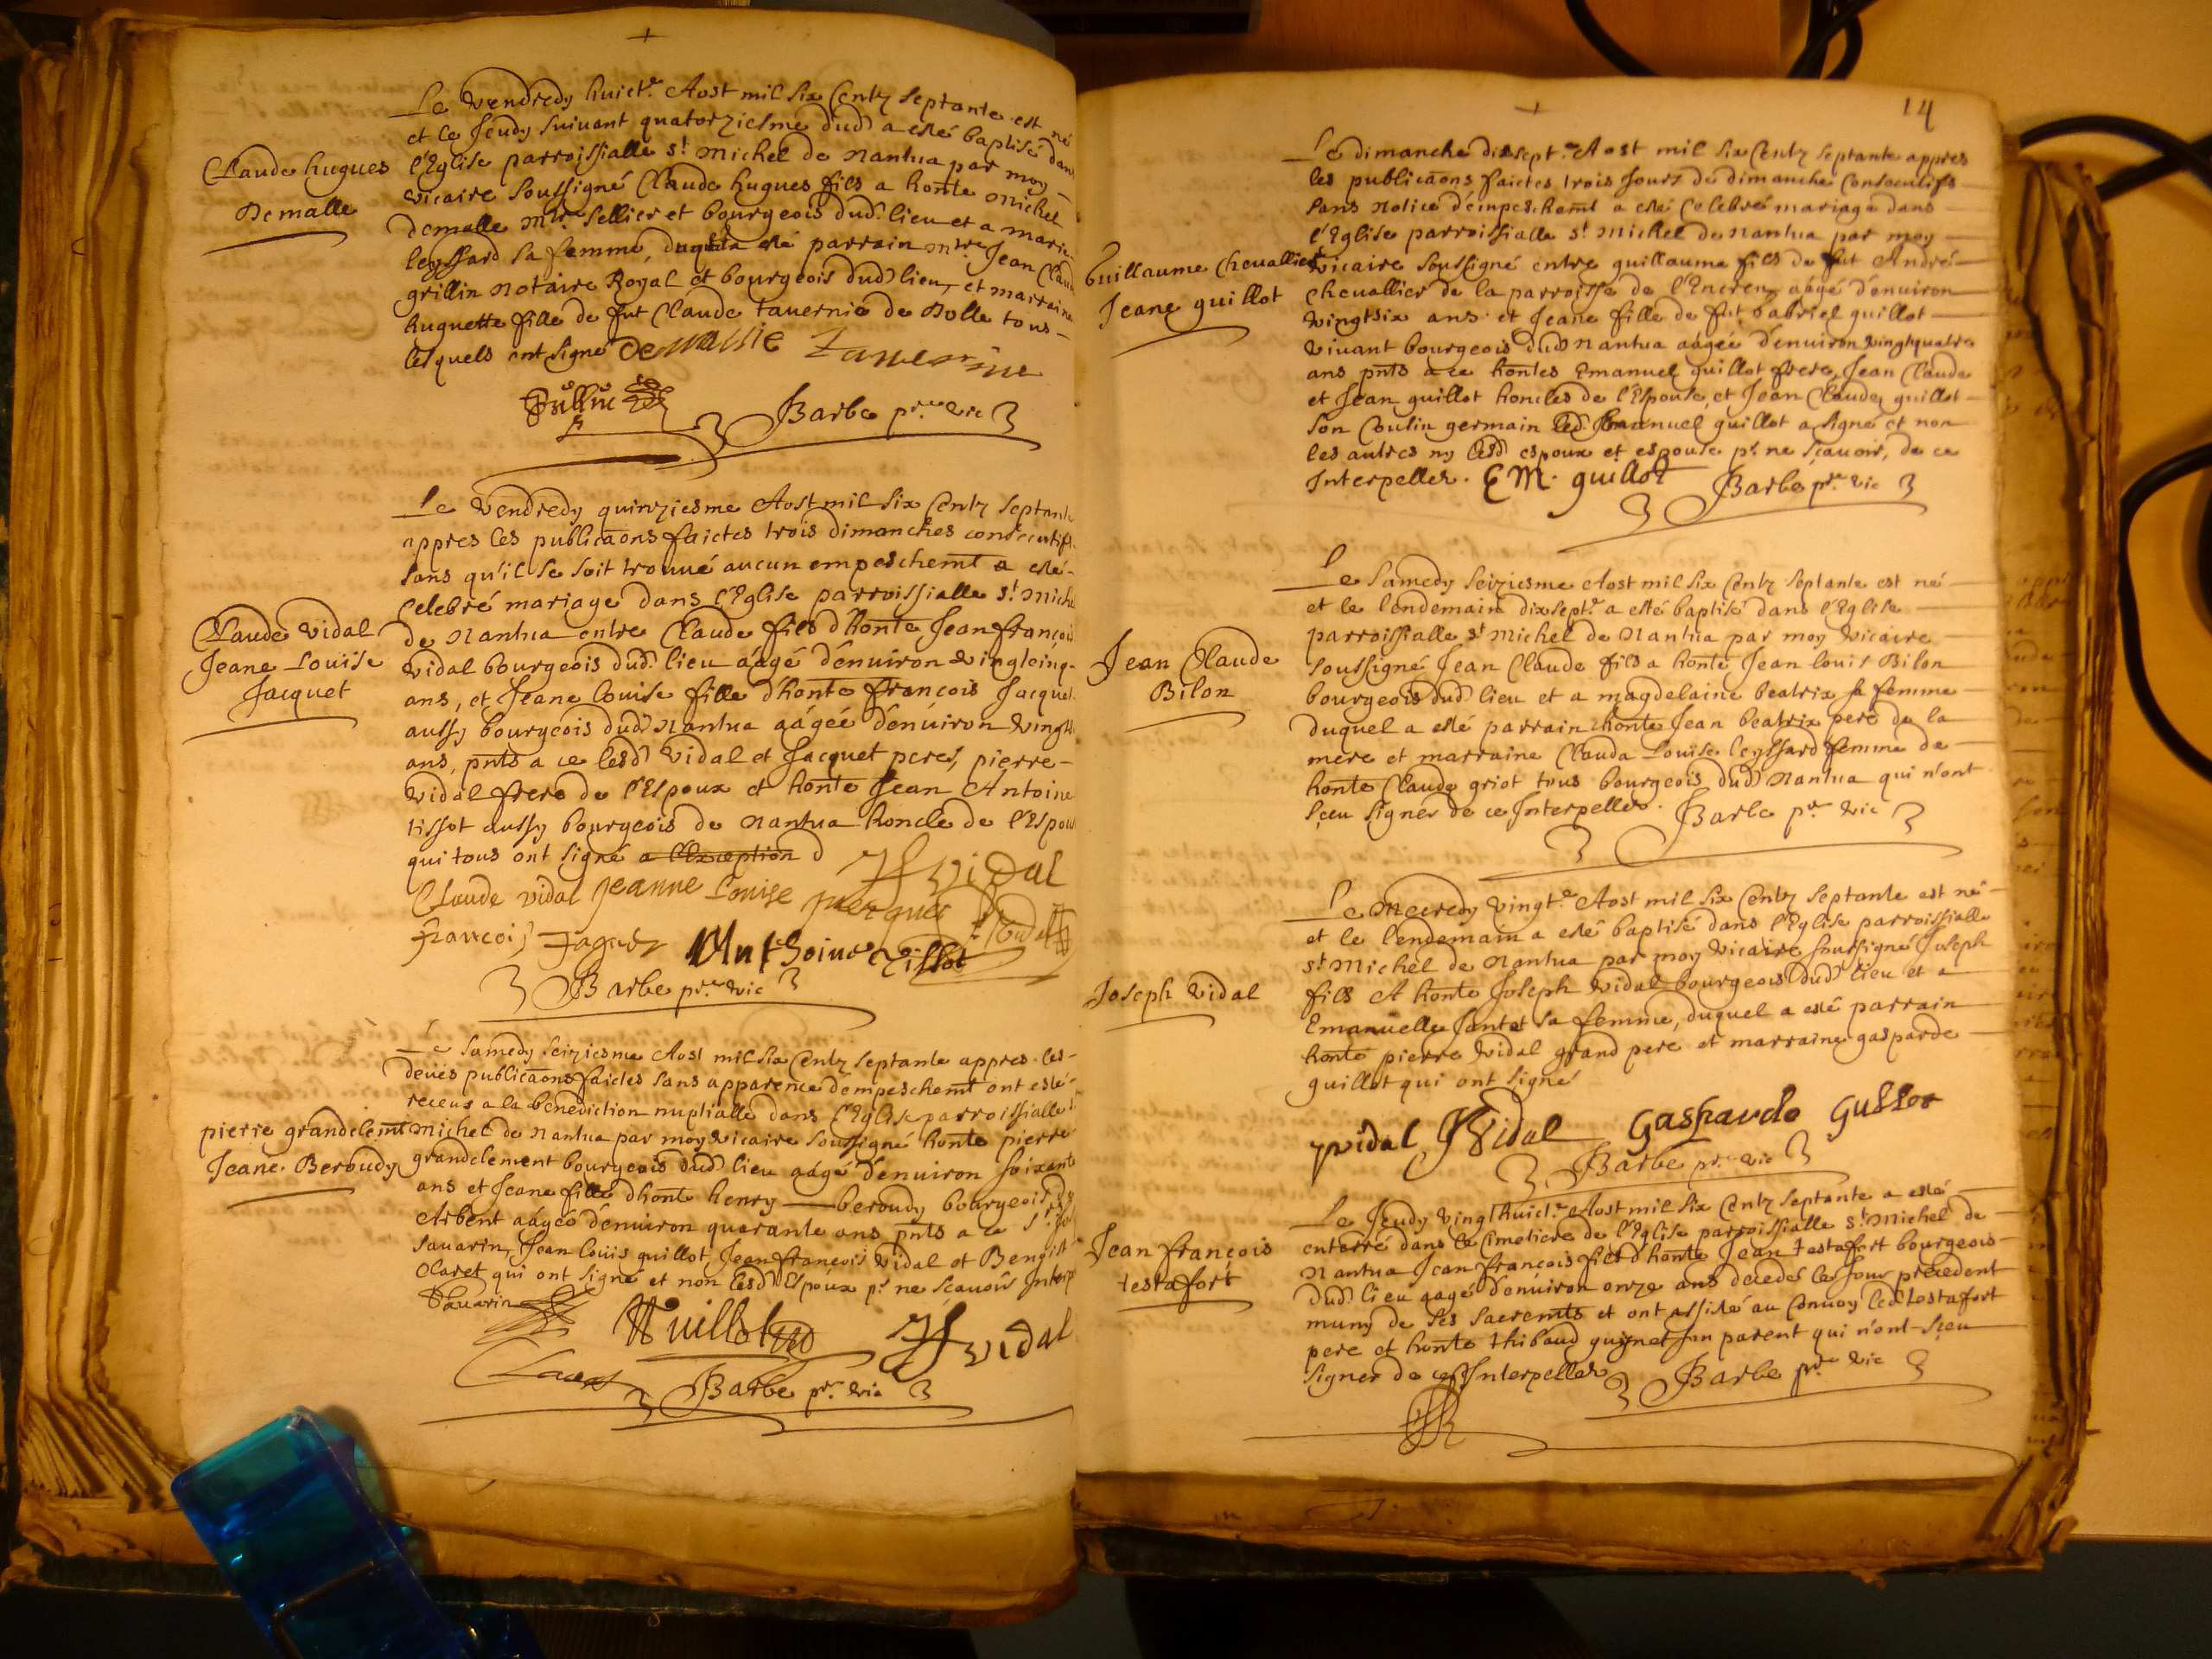 Claude hugues
Demalle
Le Vendredy huict.e Aost mil six Centz septante est né
et le Jeudy suivant quatorziesme dud a esté baptisé dans
l'Eglise parroissialle st Michel de Nantua par moy
vicaire soussigné Claude hugues fils a honte Michel
demalle mtr sellier et bourgeois dud. lieu et a marie
leyssard sa femme, duquel a esté parrain mtre Jean Claude
grillin notaire Royal et bourgeois dud lieu, et marraine
huguette fille de fut Claude tavernie de Dolle tous
lesquels ont signé Demalle
Barbe pr.e vic
Claude vidal
Jeane Louise
Jacquet
Le Vendredy quinziesme Aost mil six Centz septante
appres les publicaons faictes trois dimanches consecutifs
sans qu'il se soit trouvé aucun empeschemt a esté
Celebré mariage dans l'Eglise parroissialle st Michel
de Nantua entre Claude fils d'honte Jean françois
vidal bourgeois dud. lieu aâgé d'environ vingtcinq
ans, et Jeane louise fille d'honte françois Jacquet
aussy bourgeois dud Nantua aâgée d'environ vingt
ans, pnts a ce lesd vidal et Jacquet peres, pierre
vidal frere de l'Espoux et honte Jean Antoine
tissot aussy bourgeois de Nantua honcle de l'Espouse
qui tous ont signé a l'Exception d
JF vidal
Claude vidal Jeanne Louise Jacques
francois Jaques Anthoine Tissot
Barbe pr.e vic
pierre grandclemt
Jeane Beroudy
Le samedy seiziesme Aost mil six Centz septante appres les
deues publicaons faictes sans apparence d'empeschemt ont esté
receus a la benediction nuptialle dans l'Eglise parroissialle st
Michel de Nantua par moy vicaire soussigné honte pierre
grandclement bourgeois dud lieu aâgé d'environ soixante
ans et Jeane fille d'honte henry beroudy bourgeois du
Arbent aâgée d'environ quarante ans pnts a ce
savarin, Jean Louis guillot Jean françois vidal et Benoist
Claret qui ont signé et non lesd Espoux pr ne sçavoir Interp
Savarin
Guillot JF vidal
Claret
Barbe pr.e vic
14
Guillaume Chevallier
Jeane guillot
Le dimanche dixsept.e Aost mil six Centz septante appres
les publicaons faictes trois Jours de dimanche Consecutifs
sans notice d'empeschemt a esté Celebré mariage dans
l'Eglise parroissialle st Michel de Nantua par moy
vicaire soussigné entre guillaume fils de fut André
Chevallier de la parroisse de aâgé d'environ
vingtsix ans et Jeane fille de fut Gabriel guillot
vivant bourgeois dud Nantua aâgée d'environ vingtquatre
ans pnts a ce hontes Emanuel guillot frere, Jean Claude
et Jean guillot honcles de l'Espouse, et Jean Claude guillot
son Cousin germain led. Emanuel guillot a signé et non
les autres ny lesd espoux et espouse pr ne sçavoir, de ce
Interpellez. EM. guillot Barbe pr.e vic
Jean Claude
Bilon
Le samedy seiziesme Aost mil six Centz septante est né
et le lendemain dixsept.e a esté baptisé dans l'Eglise
parroissialle st Michel de Nantua par moy vicaire
soussigné Jean Claude fils a honte Jean louis Bilon
bourgeois dud lieu et a magdelaine beatrix sa femme
duquel a esté parrain honte Jean beatrix pere de la
mere et marraine Clauda Louise leyssard femme de
honte Claude griot tous bourgeois dud Nantua qui n'ont
sçeu signer de ce Interpellez. Barbe pr.e vic
Joseph vidal
Le mecredy vingt.e Aost mil six Centz septante est né
et le lendemain a esté baptisé dans l'Eglise parroissialle
st Michel de Nantua par moy vicaire soussigné Joseph
fils A honte Joseph vidal bourgeois dud lieu et a
Emanuelle Jantet sa femme, duquel a esté parrain
honte pierre vidal grand pere et marraine gasparde
guillot qui ont signé
pvidal J Vidal Gasparde Gullot
Barbe pr.e vic
Jean françois
testafort
Le Jeudy vingthuict.e Aost mil six Centz septante a esté
enterré dans le Cimetiere de l'Eglise parroissialle st Michel de
Nantua Jean françois fils d'honte Jean testafort bourgeois
dud lieu aagé d'environ onze ans decedé le Jour precedent
muny de ses sacremts et ont assisté au Convoy led testafort
pere et honte thibaud guynet son parent qui n'ont sçeu
signer de ce Interpellez Barbe pr.e vic